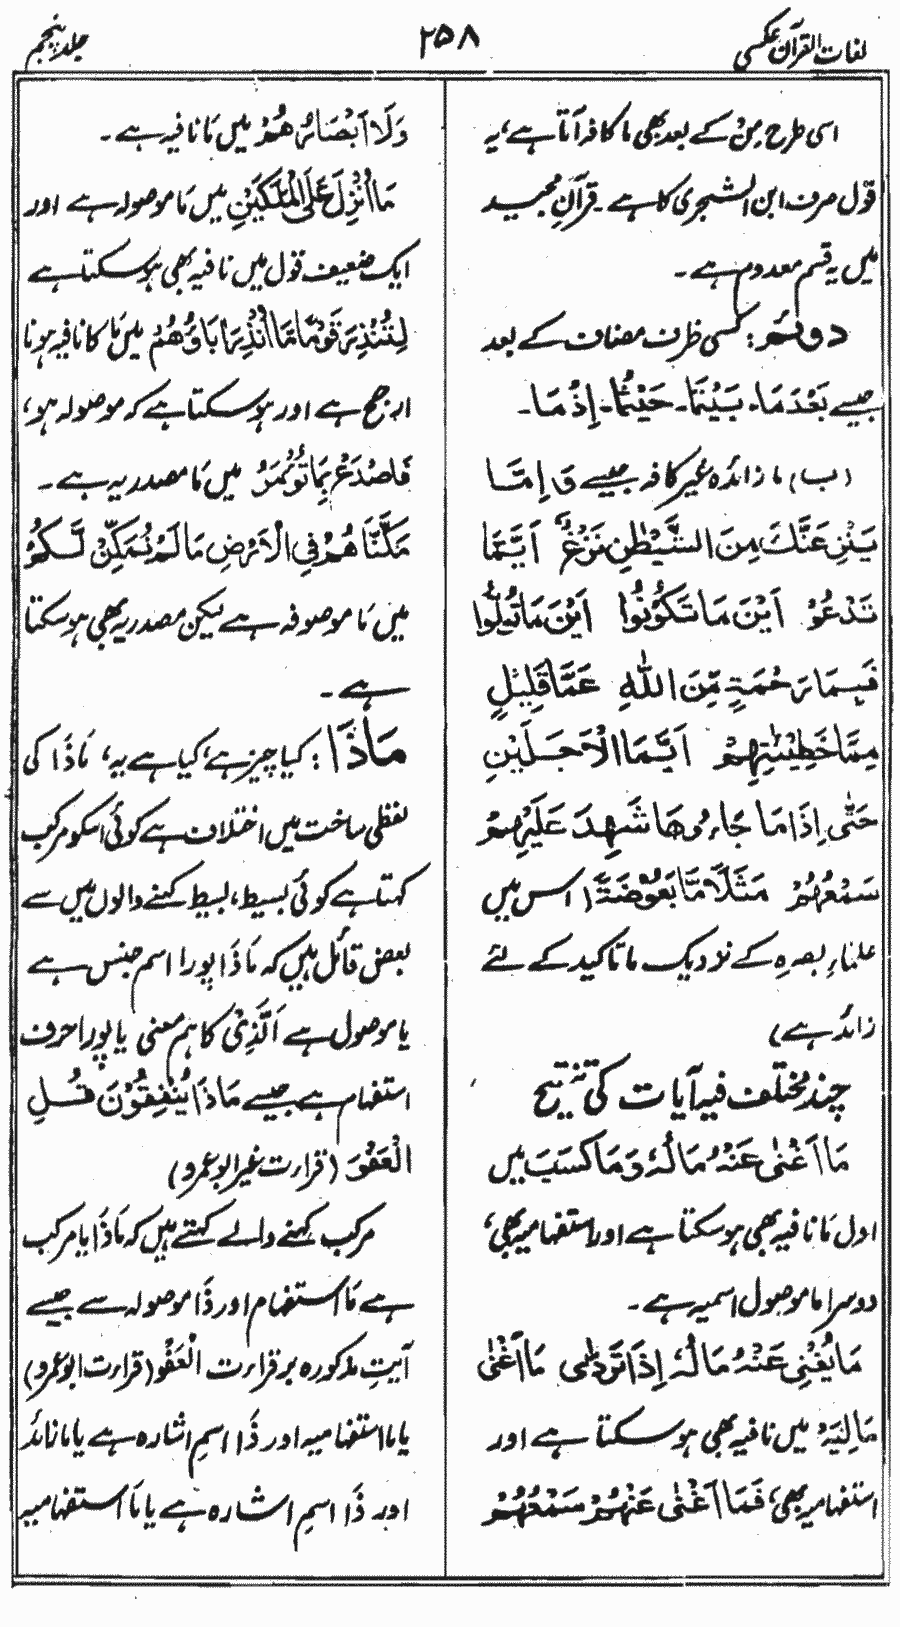 لغات القرآن عکسی
۲۵۸
جلد پنجم
اسی طرح مِنْ کے بعد بھی ما کافہ آتا ہے، یہ
قول صرف ابن الشجری کا ہے ۔ قرآنِ مجید
میں یہ قسم معدوم ہے ۔
دوئم : کسی ظرف مضاف کے بعد
جیسے بَعْدَمَا۔ بَيْنَمَا۔ حَيْثُمَا۔ إِذْمَا۔
(ب) ما زائدہ غیر کافہ جیسے وَ اِمَّا
يَنْزَغَنَّكَ مِنَ الشَّيْطٰنِ نَزْغٌ اَيَّمَّا
تَدْعُوْ اَيْنَ مَا تَكُوْنُوْا اَيْنَ مَا تُوَلُّوْا
فَبِمَا رَحْمَةٍ مِّنَ اللّٰهِ عَمَّا قَلِيْلٍ
مِمَّا خَطِيْئٰتِهِمْ اَيَّمَا الْاَجَلَيْنِ
حَتّٰى اِذَا مَا جَاءُوْهَا شَهِدَ عَلَيْهِمْ
سَمْعُهُمْ مَثَلًا مَّا بَعُوْضَةً ( اس میں
علماءِ بصرہ کے نزدیک ما تاکید کے لئے
زائد ہے )
چند مختلف فیہ آیات کی تنقیح
مَا اَغْنٰى عَنْهُ مَالُهٗ وَمَا كَسَبَ میں
اول مَا نافیہ بھی ہو سکتا ہے اور استفہامیہ بھی،
دوسرا ما موصول اسمیہ ہے ۔
مَا يُغْنِى عَنْهُ مَالُهٗ اِذَا تَرَدّٰى مَا اَغْنٰى
مَالِيَهْ میں نافیہ بھی ہو سکتا ہے اور
استفہامیہ بھی، فَمَا اَغْنٰى عَنْهُمْ سَمْعُهُمْ
وَلَا اَبْصَارُهُمْ میں مَا نافیہ ہے ۔
مَا اُنْزِلَ عَلَى الْمَلَكَيْنِ میں مَا موصولہ ہے اور
ایک ضعیف قول میں نافیہ بھی ہو سکتا ہے
لِتُنْذِرَ قَوْمًا مَّا اُنْذِرَ اٰبَاؤُهُمْ میں مَا کا نافیہ ہونا
ارجح ہے اور ہو سکتا ہے کہ موصولہ ہو،
فَاصْدَعْ بِمَا تُؤْمَرُ میں مَا مصدریہ ہے ۔
مَكَّنَّاهُمْ فِى الْاَرْضِ مَا لَمْ نُمَكِّنْ لَّكُمْ
میں مَا موصوفہ ہے لیکن مصدریہ بھی ہو سکتا
ہے ۔
مَاذَا : کیا چیز ہے، کیا ہے یہ، مَاذَا کی
لفظی ساخت میں اختلاف ہے کوئی اسکو مرکب
کہتا ہے کوئی بسیط، بسیط کہنے والوں میں سے
بعض قائل ہیں کہ مَاذَا پورا اسم جنس ہے
یا موصول ہے اَلَّذِىْ کا ہم معنی یا پورا حرف
استفہام ہے جیسے مَاذَا يُنْفِقُوْنَ قُلِ
الْعَفْوَ (قراءت غیر ابو عمرو)
مرکب کہنے والے کہتے ہیں کہ مَاذَا یا مرکب
ہے مَا استفہام اور ذَا موصولہ سے جیسے
آیتِ مذکورہ بر قراءت الْعَفْوُ (قراءت ابو عمرو)
یا ما استفہامیہ اور ذَا اسمِ اشارہ ہے یا ما زائد
اور ذَا اسمِ اشارہ ہے یا مَا استفہامیہ